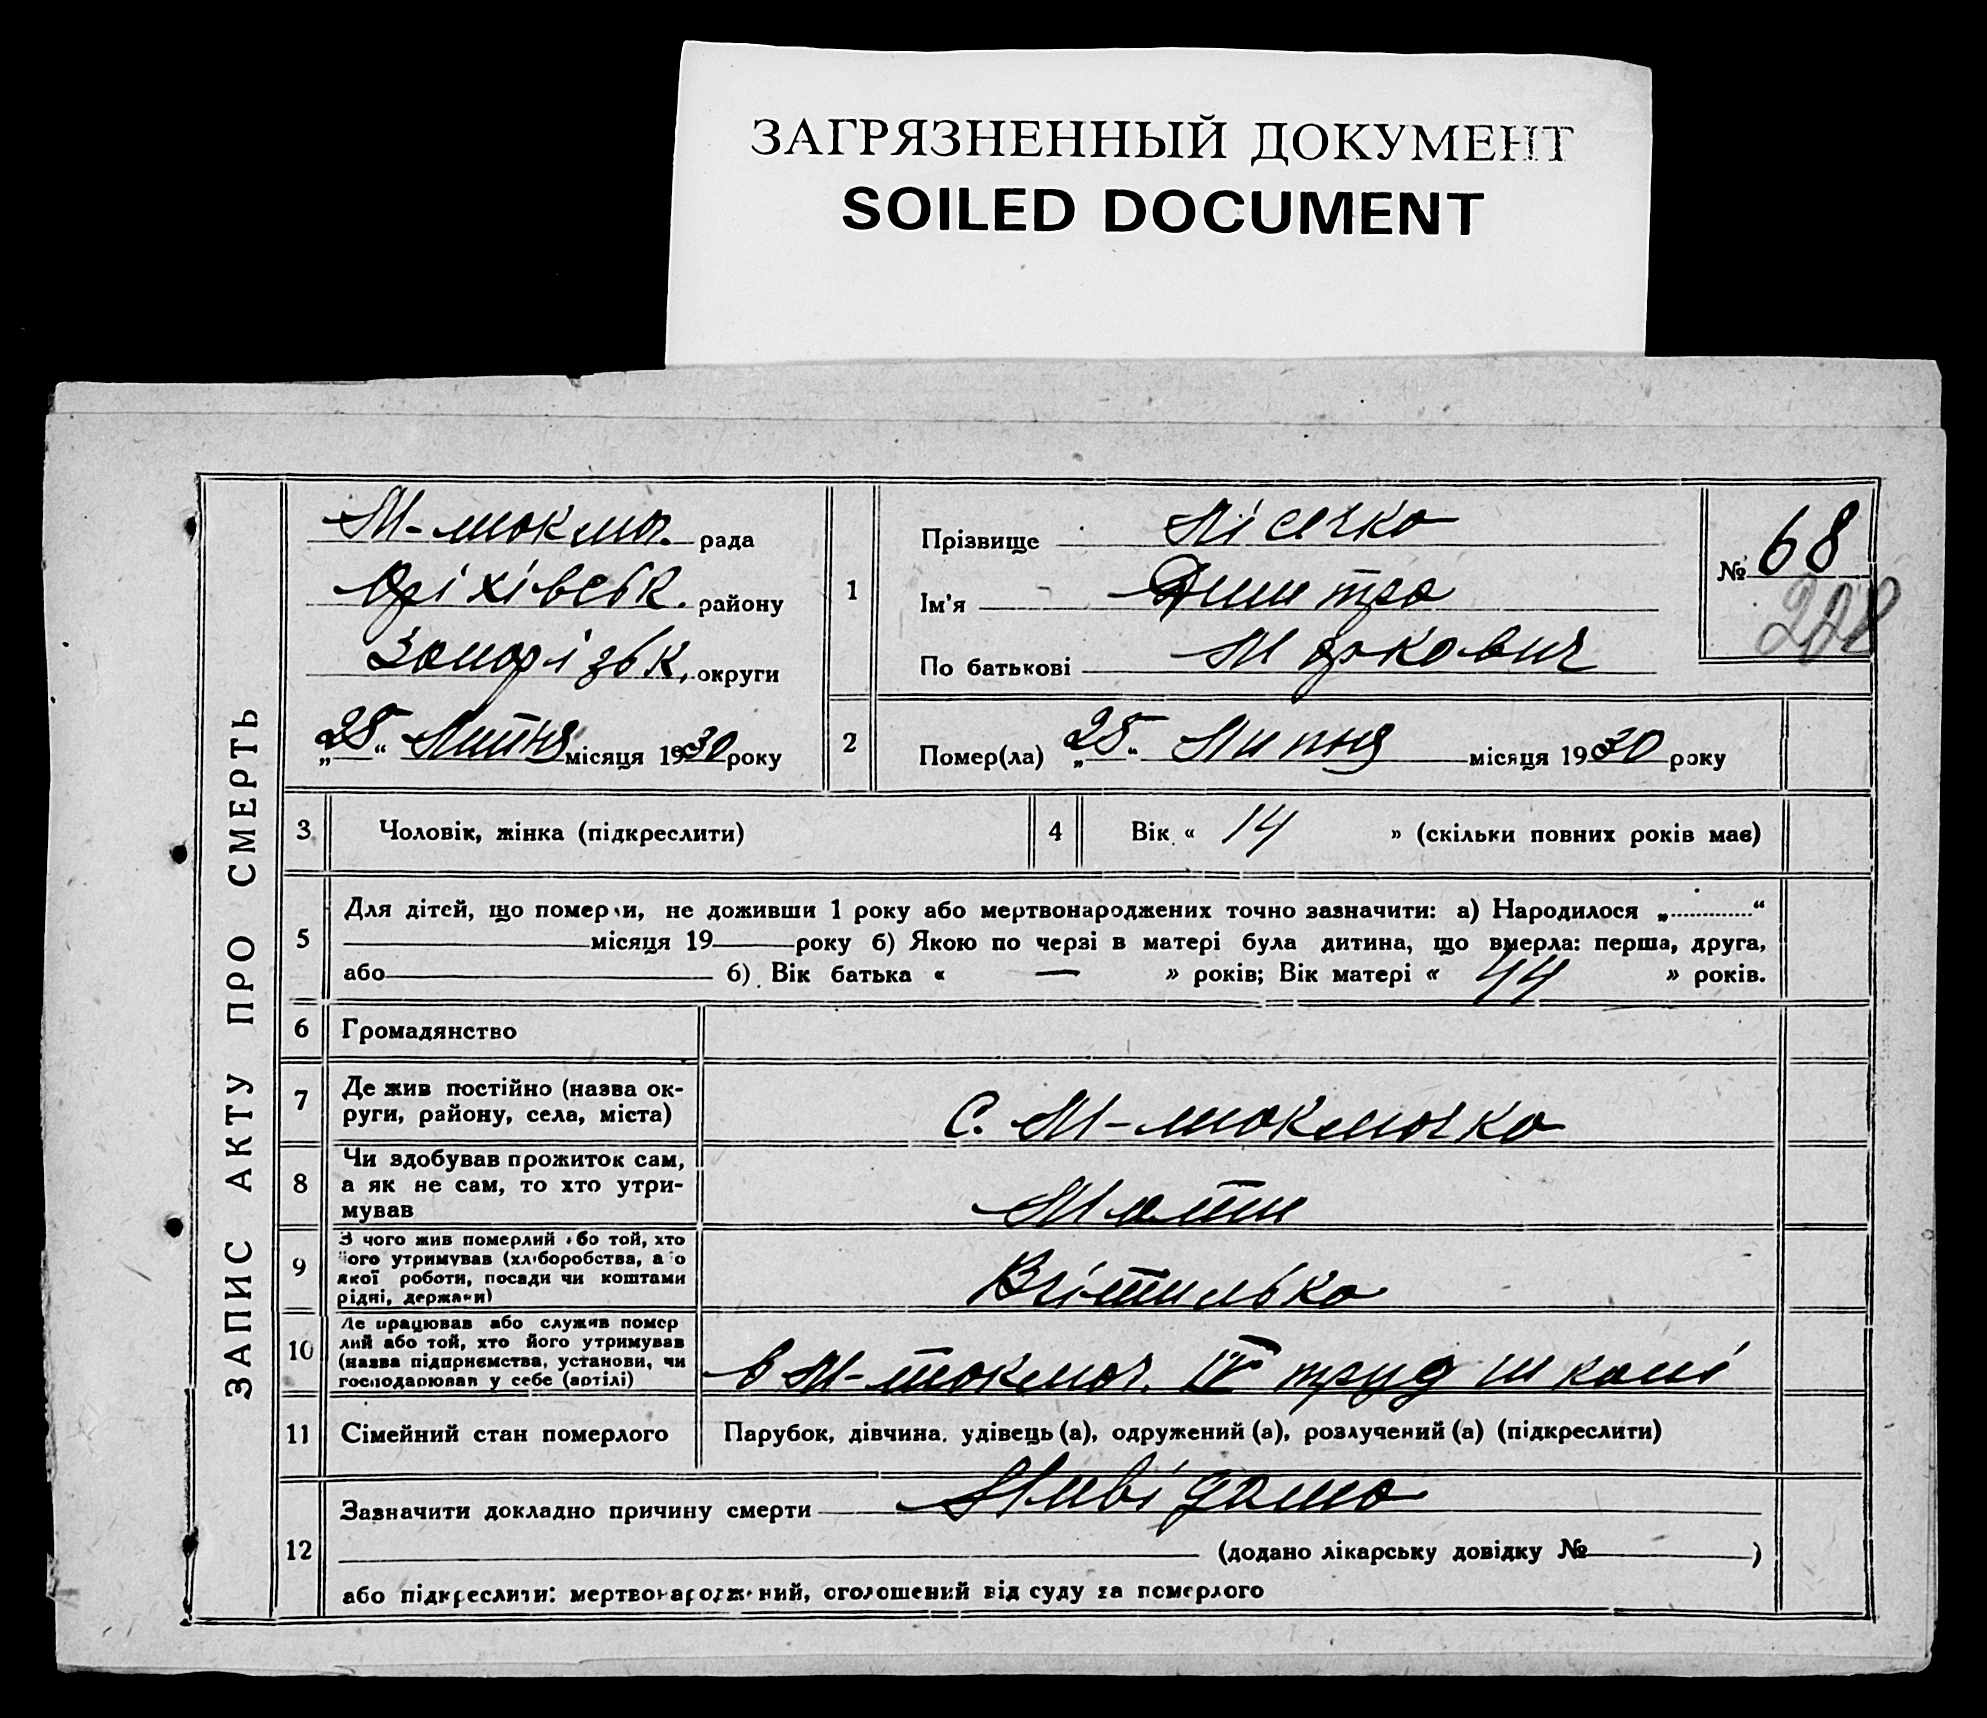 ЗАГРЯЗНЕННЫЙ ДОКУМЕНТ
SOILED DOCUMENT
ЗАПИС АКТУ ПРО СМЕРТЬ
М-токмач. рада
Оріхівськ. району
Запорізьк. округи
„28“ Липня місяця 1930 року
1
Прізвище Лісечко
Ім'я Дмитро
По батькові Маркович
№ 68
208
2 Помер(ла) „25“ Липня місяця 1930 року
3 Чоловік, жінка (підкреслити)
4 Вік « 14 » (скільки повних років має)
5 Для дітей, що померли, не доживши 1 року або мертвонароджених точно зазначити: а) Народилося „............“
місяця 19 року б) Якою по черзі в матері була дитина, що вмерла: перша, друга,
або б) Вік батька « — » років; Вік матері « 44 » років.
6 Громадянство
7 Де жив постійно (назва ок-
руги, району, села, міста)
С. М-токмачка
8 Чи здобував прожиток сам,
а як не сам, то хто утри-
мував
Мати
9 З чого жив померлий або той, хто
його утримував (хліборобства, або
якої роботи, посади чи коштами
рідні, держави)
Вчителька
10 Де працював або служив помер
лий або той, хто його утримував
(назва підприємства, установи, чи
господарював у себе (артілі)
в М-токмач. IV труд школі
11 Сімейний стан померлого
Парубок, дівчина, удівець (а), одружений (а), розлучений (а) (підкреслити)
12 Зазначити докладно причину смерти Невідомо
(додано лікарську довідку № )
або підкреслити: мертвонароджений, оголошений від суду за померлого